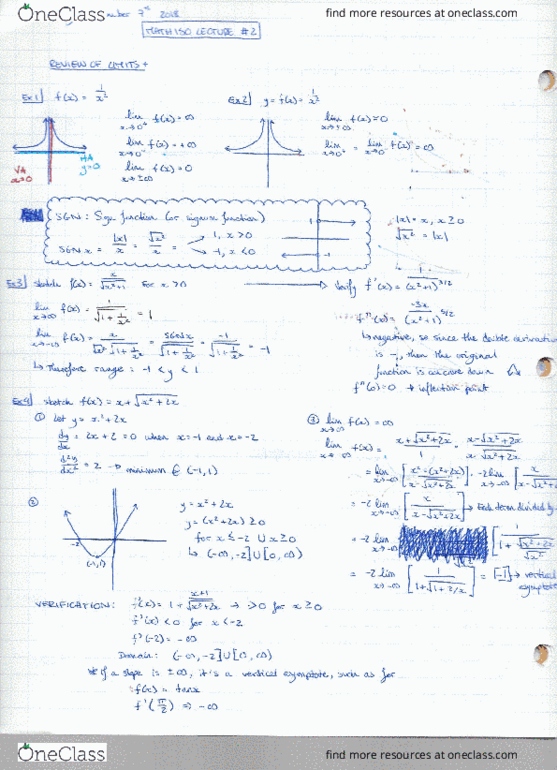 OneClass
find more resources at oneclass.com
7th 2018
MATH 150 LECTURE #2
REVIEW OF LIMITS +
Ex1 f(x) = 1/x²
lim x→0⁺ f(x) = ∞
lim x→0⁻ f(x) = +∞
lim x→±∞ f(x) = 0
VA x=0
HA y=0
Ex2 y = f(x) = 1/x²
lim x→±∞ f(x) = 0
lim x→0⁺ = lim x→0⁻ f(x) = ∞
SGN: Sign function (or signum function)
SGN x = |x|/x = √x²/x = 1, x > 0
-1, x < 0
1
-1
|x| = x, x ≥ 0
√x² = |x|
Ex3 sketch f(x) = x/√x²+1 For x > 0
Verify f'(x) = 1/(x²+1)^3/2
lim x→∞ f(x) = 1/√1+1/x² = 1
f''(x) = -3x/(x²+1)^5/2
lim x→-∞ f(x) = x/√x²√1+1/x² = SGN x/√1+1/x² = -1/√1+1/x² = -1
↳ Therefore range: -1 < y < 1
↳ negative, so since the double derivative
is -, then the original
function is concave down
f''(0) = 0 → inflection point
Ex4 sketch f(x) = x + √x²+2x
① Let y = x²+2x
dy/dx = 2x + 2 = 0 when x = -1 and x = -2
d²y/dx² = 2 → minimum (-1,1)
② y = x² + 2x
y = (x²+2x) ≥ 0
for x ≤ -2 ∪ x ≥ 0
↳ (-∞, -2] ∪ [0, ∞)
-2
(-1,1)
③ lim f(x) = ∞
lim x→-∞ f(x) = x+√x²+2x/1 · x-√x²+2x/x-√x²+2x
= lim x→-∞ [x²-(x²+2x)/x-√x²+2x] = -2 lim x→-∞ [x/x-√x²+2x
= -2 lim x→-∞ [x/x-√x²+2x] → Each term divided by
= -2 lim x→-∞ [1/1+√x²+2x/√x²]
= -2 lim x→-∞ [1/1+√1+2/x] = [-1] → vertical
asymptote
VERIFICATION: f'(x) = 1 + x+1/√x²+2x → > 0 for x ≥ 0
f'(x) < 0 for x < -2
f'(-2) = -∞
Domain: (-∞, -2] ∪ [0, ∞)
* If a slope is ±∞, it's a vertical asymptote, such as for
f(x) = tan x
f'(π/2) ⇒ -∞
OneClass
find more resources at oneclass.com